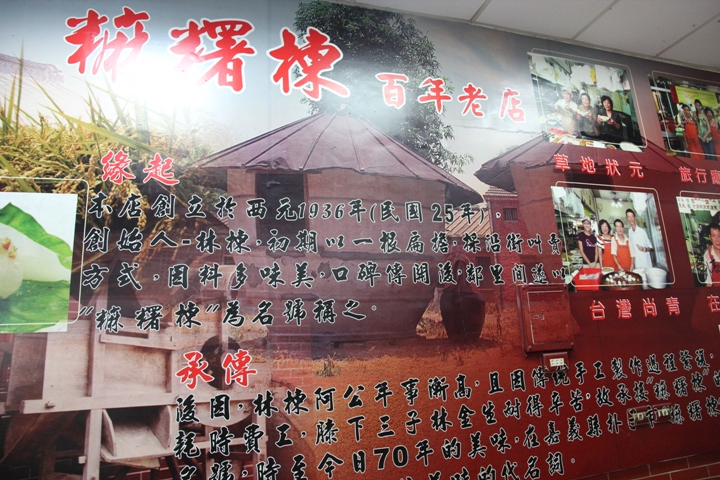 糜糬棟 百年老店
緣起
本店創立於西元1936年(民國25年),
創始人-林棟,初期以一根扁擔,採沿街叫賣
方式,因料多味美,口碑傳開後,鄰里間遂以
"糜糬棟"為名號稱之。
承傳
後因,林棟阿公年事漸高,且因傳統手工製作過程繁瑣,
耗時費工,膝下三子林金生樹得辛苦,故承接"糜糬棟"
名號,時至今日70年的美味,在嘉義縣朴子市"糜糬棟"
的代名詞。
草地狀元
旅行
台灣尚青
在